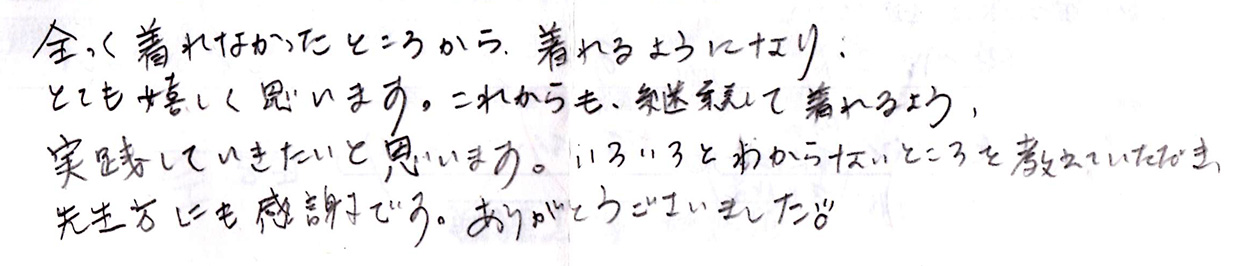 全っく着れなかったところから、着れるようになり、
とても嬉しく思います。これからも、継続して着れるよう、
実践していきたいと思います。いろいろとわからないところを教えていただき、
先生方にも感謝です。ありがとうございました。